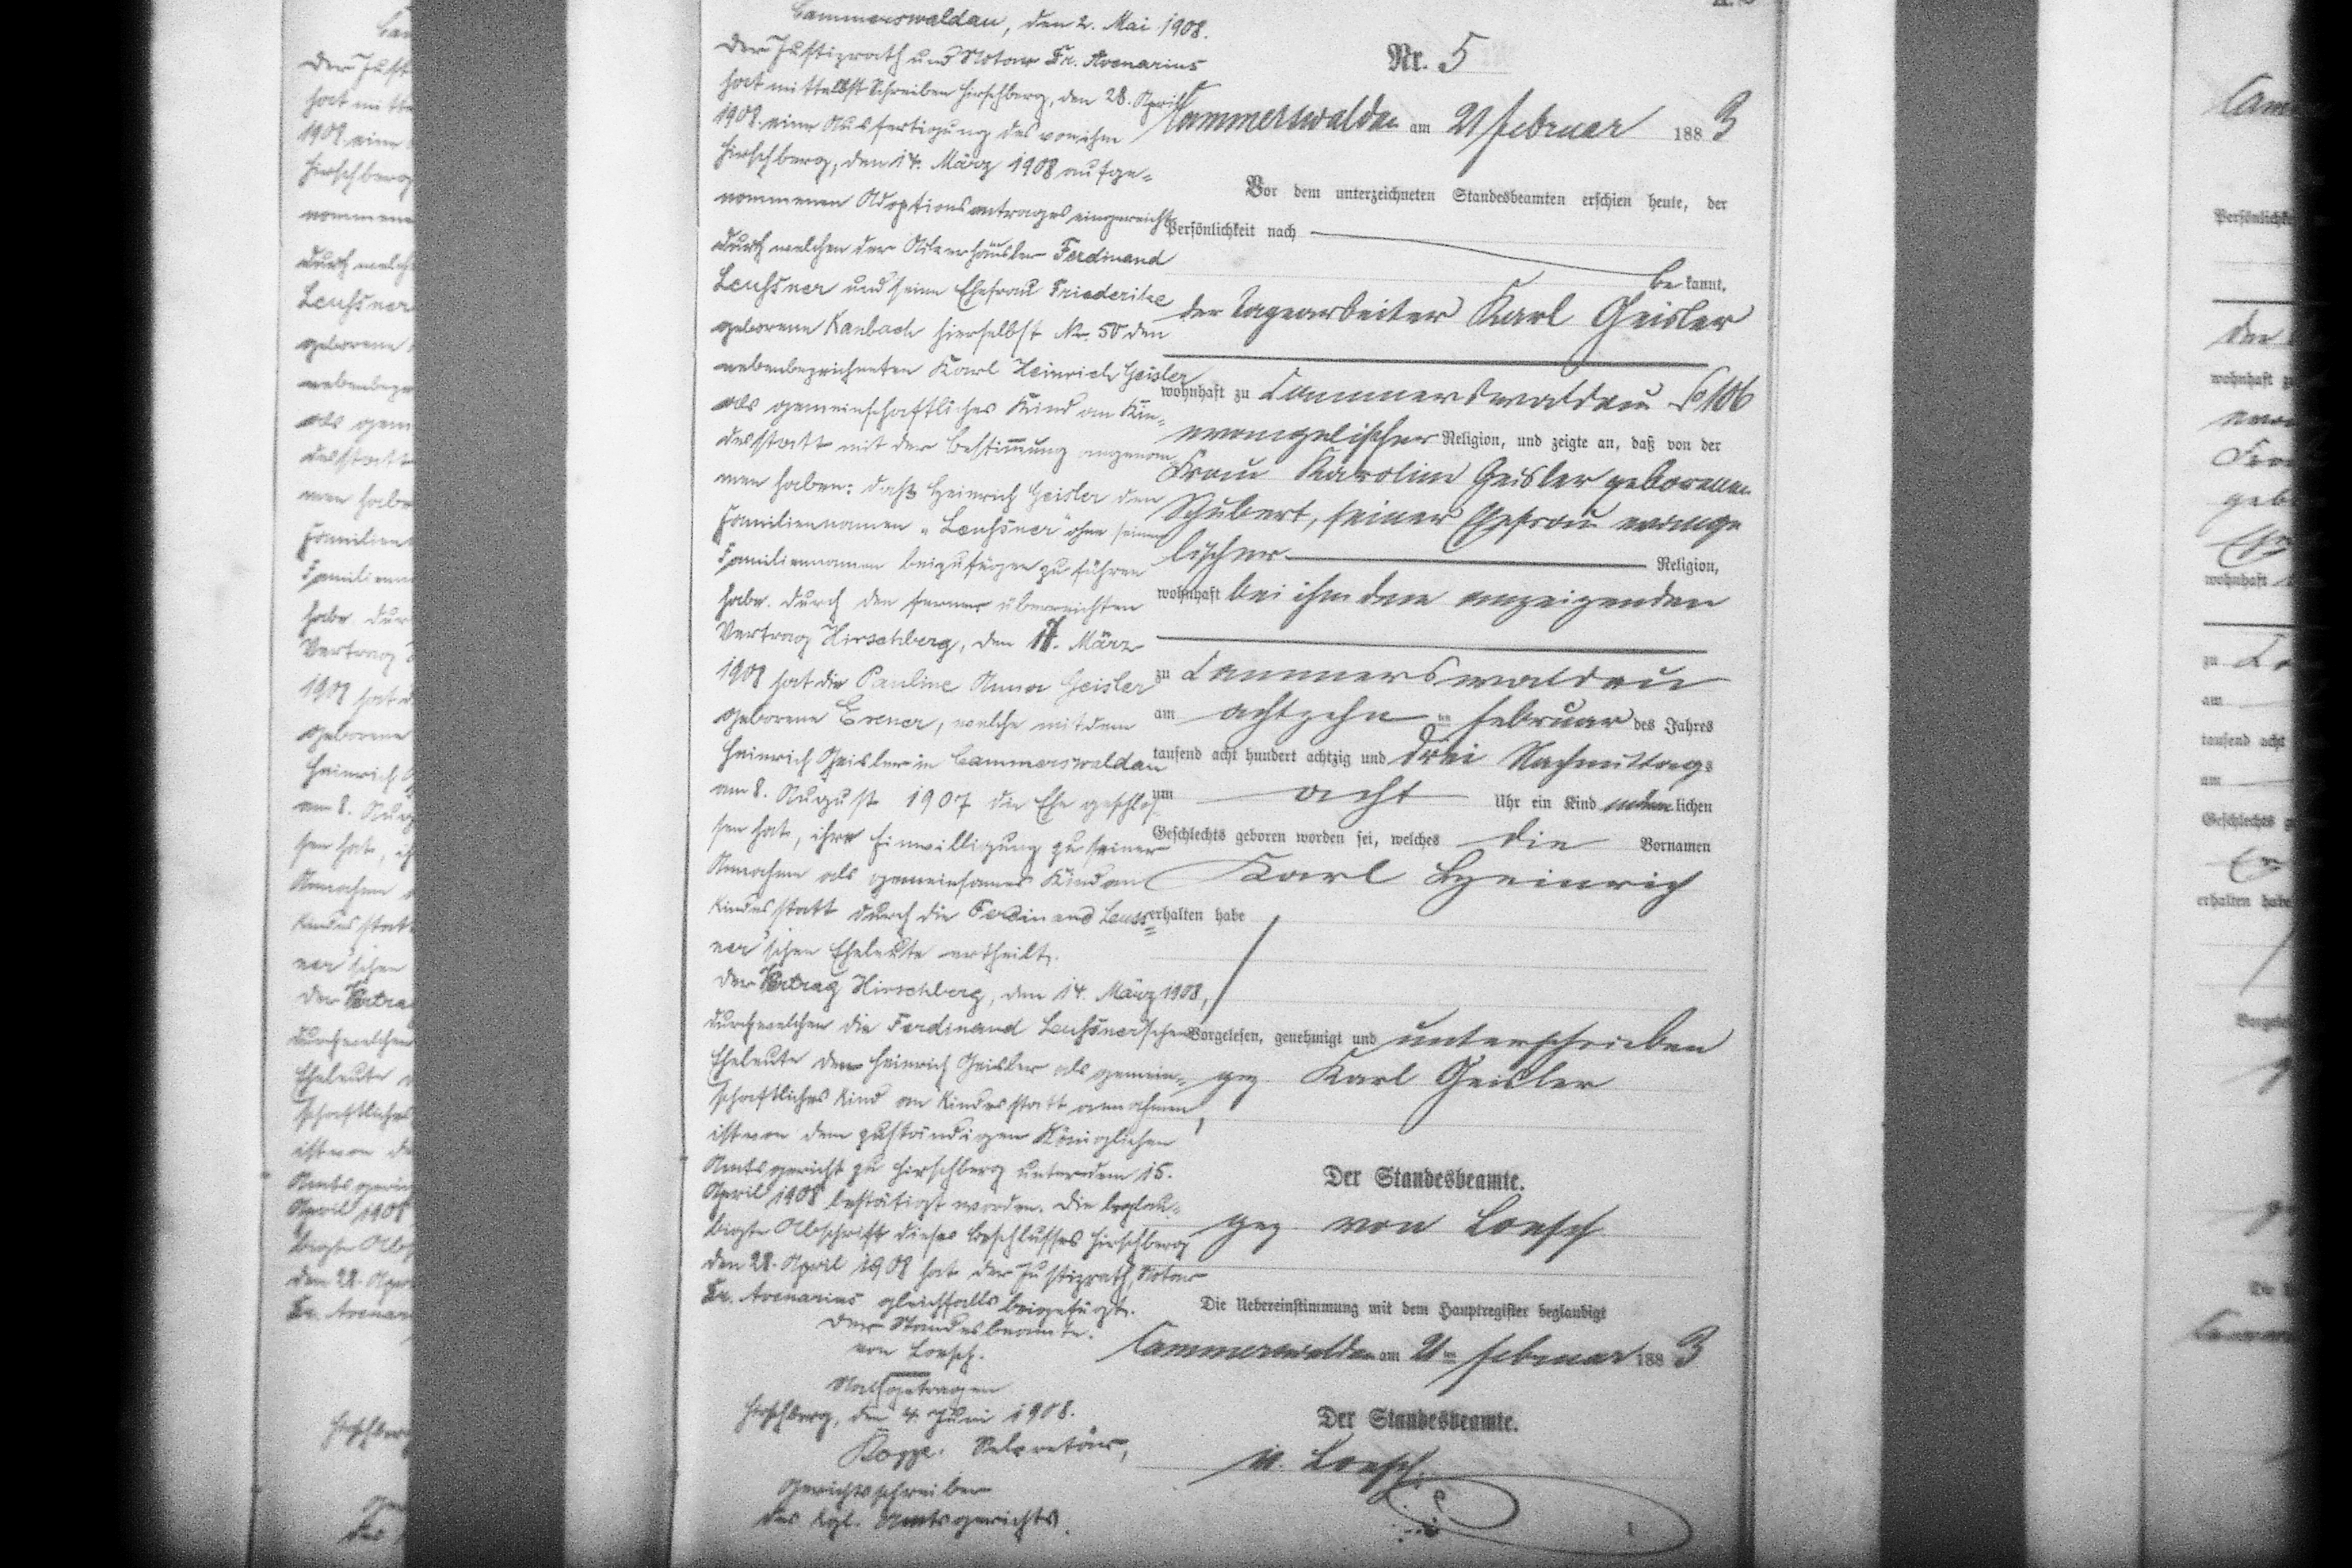 Cammerswaldau, den 2. Mai 1908.
Der Justizrath und Notar Fr. Avenarius
hat mittelst Schreiben Hirschberg, den 28. April
1908 eine Ausfertigung des von ihm
Hirschberg, den 14. März 1908 aufge-
nommenen Adoptionsantrages eingereicht
durch welchen der Ackerhäusler Ferdinand
Leußner und seine Ehefrau Friederike
geborene Kanbach hierselbst Nr. 50 den
nebenbezeichneten Karl Heinrich Geisler
als gemeinschaftliches Kind an Kin-
desstatt mit der Bestimmung angenom
men haben: daß Heinrich Geisler den
Familiennamen "Leußner" ohne seinen
Familiennamen beizufügen zu führen
habe. Durch den ferner überreichten
Vertrag Hirschberg, den 17. März
1908 hat die Pauline Anna Geisler
geborene Exner, welche mit dem
Heinrich Geisler in Cammerswaldau
am 8. August 1907 die Ehe geschlos
sen hat, ihre Einwilligung zu seiner
Annahme als gemeinsames Kind an
Kindesstatt durch die Ferdinand Leuss=
ner'schen Eheleute ertheilt.
Der Vertrag Hirschberg, den 14. März 1908,
durch welchen die Ferdinand Leußner'schen
Eheleute den Heinrich Geisler als gemein-
schaftliches Kind an Kindesstatt annahmen,
ist von dem zuständigen Königlichen
Amtsgericht zu Hirschberg unter dem 15.
April 1908 bestätigt worden. Die beglau-
bigte Abschrift dieses Beschlusses Hirschberg
den 28. April 1908 hat der Justizrath, Notar
Fr. Avenarius gleichfalls beigefügt.
Der Standesbeamte.
von Loesch.
Nachgetragen
Hirschberg, den 4. Juni 1908.
Sekretär,
Gerichtsschreiber
des Kgl. Amtsgerichts.
Nr. 5
Cammerswaldau am 21 Februar 1883
Vor dem unterzeichneten Standesbeamten erschien heute, der
Persönlichkeit nach
be kannt,
der Tagearbeiter Karl Geisler
wohnhaft zu Cammerswaldau 106
evangelischer Religion, und zeigte an, daß von der
Frau Karoline Geisler geborenen
Schubert, seiner Ehefrau evange
lischer Religion,
wohnhaft bei ihm dem anzeigenden
zu Cammerswaldau
am achtzehn ten Februar des Jahres
tausend acht hundert achtzig und drei Nachmittags
um acht Uhr ein Kind männlichen
Geschlechts geboren worden sei, welches die Vornamen
Karl Heinrich
erhalten habe
Vorgelesen, genehmigt und unterschrieben
gez. Karl Geisler
Der Standesbeamte.
gez von Loesch
Die Uebereinstimmung mit dem Hauptregister beglaubigt
Cammerswaldau am 21ten Februar 1883
Der Standesbeamte.
v. Loesch.